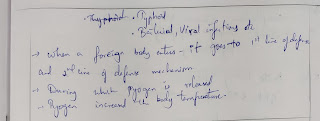 • Typhoid
• Bacterial, Viral infections etc
→ when a foreign body enters - it goes to 1st line of defense
and 2nd line of defense mechanism
→ During which Pyogen is released
→ Pyogen increased body temperature.